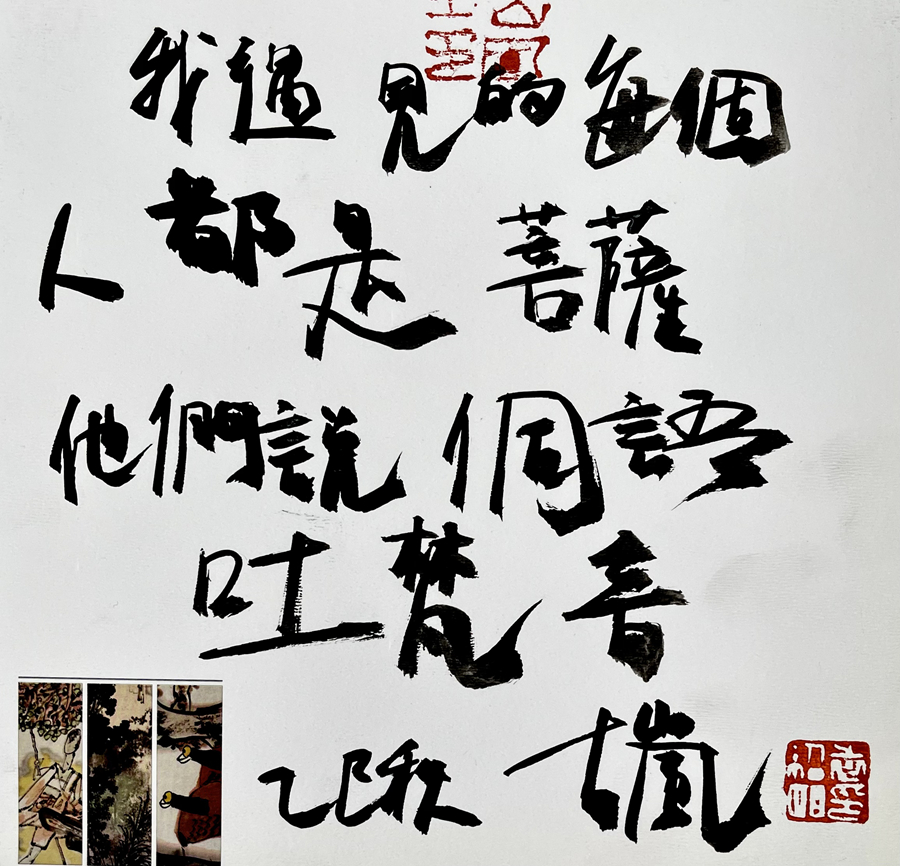 我遇見的每個
人都是菩薩
他們說個語
吐梵音
乙巳秋